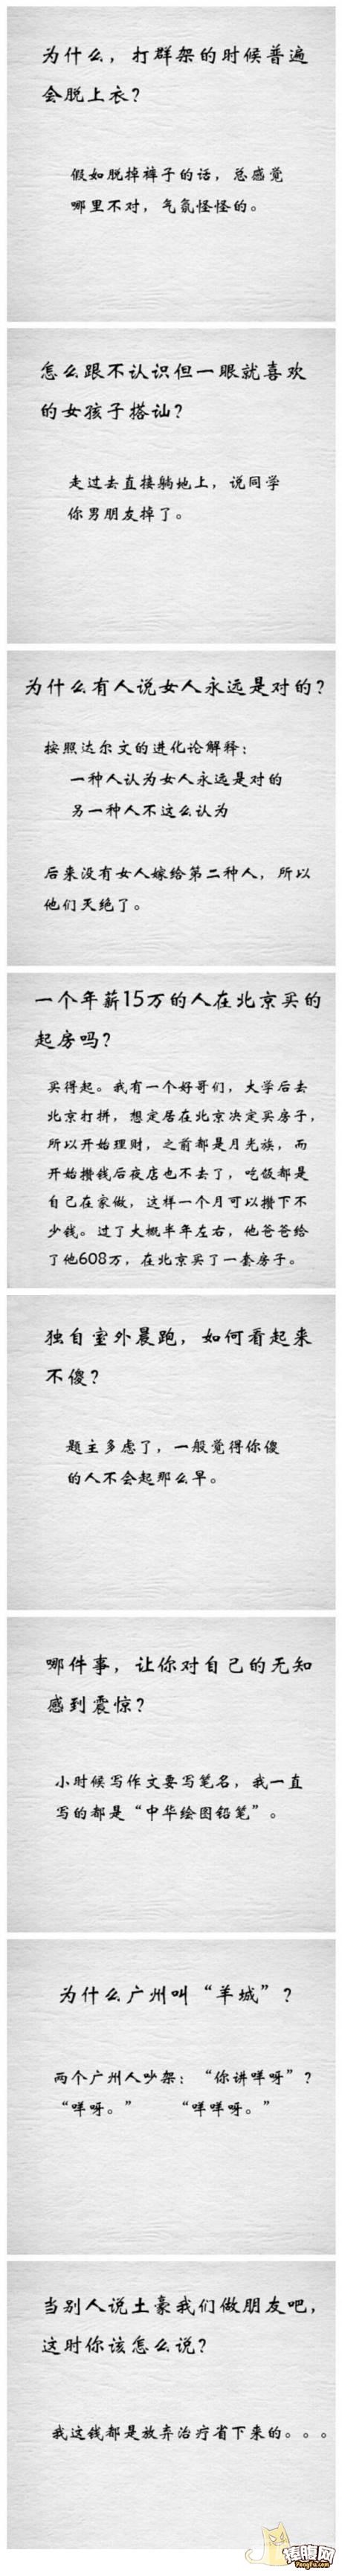 为什么，打群架的时候普遍
会脱上衣？
假如脱掉裤子的话，总感觉
哪里不对，气氛怪怪的。
怎么跟不认识但一眼就喜欢
的女孩子搭讪？
走过去直接躺地上，说同学
你男朋友掉了。
为什么有人说女人永远是对的？
按照达尔文的进化论解释：
一种人认为女人永远是对的
另一种人不这么认为
后来没有女人嫁给第二种人，所以
他们灭绝了。
一个年薪15万的人在北京买的
起房吗？
买得起。我有一个好哥们，大学后去
北京打拼，想定居在北京决定买房子，
所以开始理财，之前都是月光族，而
开始攒钱后夜店也不去了，吃饭都是
自己在家做，这样一个月可以攒下不
少钱。过了大概半年左右，他爸爸给
了他608万，在北京买了一套房子。
独自室外晨跑，如何看起来
不傻？
题主多虑了，一般觉得你傻
的人不会起那么早。
哪件事，让你对自己的无知
感到震惊？
小时候写作文要写笔名，我一直
写的都是“中华绘图铅笔”。
为什么广州叫“羊城”？
两个广州人吵架：“你讲咩呀”？
“咩呀。” “咩咩呀。”
当别人说土豪我们做朋友吧，
这时你该怎么说？
我这钱都是放弃治疗省下来的。。。
捧腹网
PengFu.com